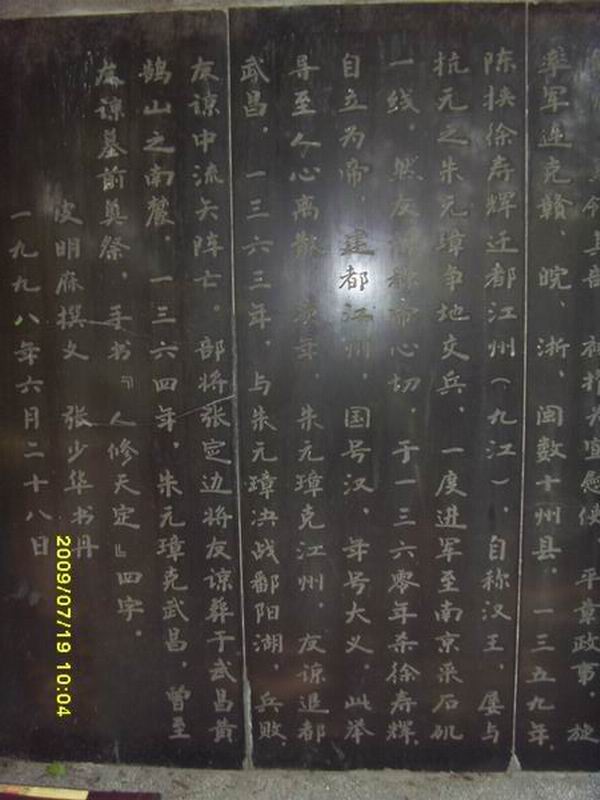 并领其部 被指为宣慰使 平章政事，旋
率军连克赣、皖、浙、闽数十州县，一三五九年，
陈挟徐寿辉迁都江州（九江），自称汉王 屡与
抗元之朱元璋争地交兵，一度进军至南京采石矶
一线，然友谅称帝心切，于一三六零年杀徐寿辉，
自立为帝，建都江州，国号汉，年号大义，此举
导至人心离散，次年，朱元璋克江州，友谅退都
武昌，一三六三年，与朱元璋决战鄱阳湖，兵败，
友谅中流矢阵亡。部将张定边将友谅葬于武昌黄
鹄山之南麓，一三六四年，朱元璋克武昌，曾至
友谅墓前奠祭，手书『人修天定』四字。
皮明庥撰文 张少华书丹
一九九八年六月二十八日
2009/07/19 10:04